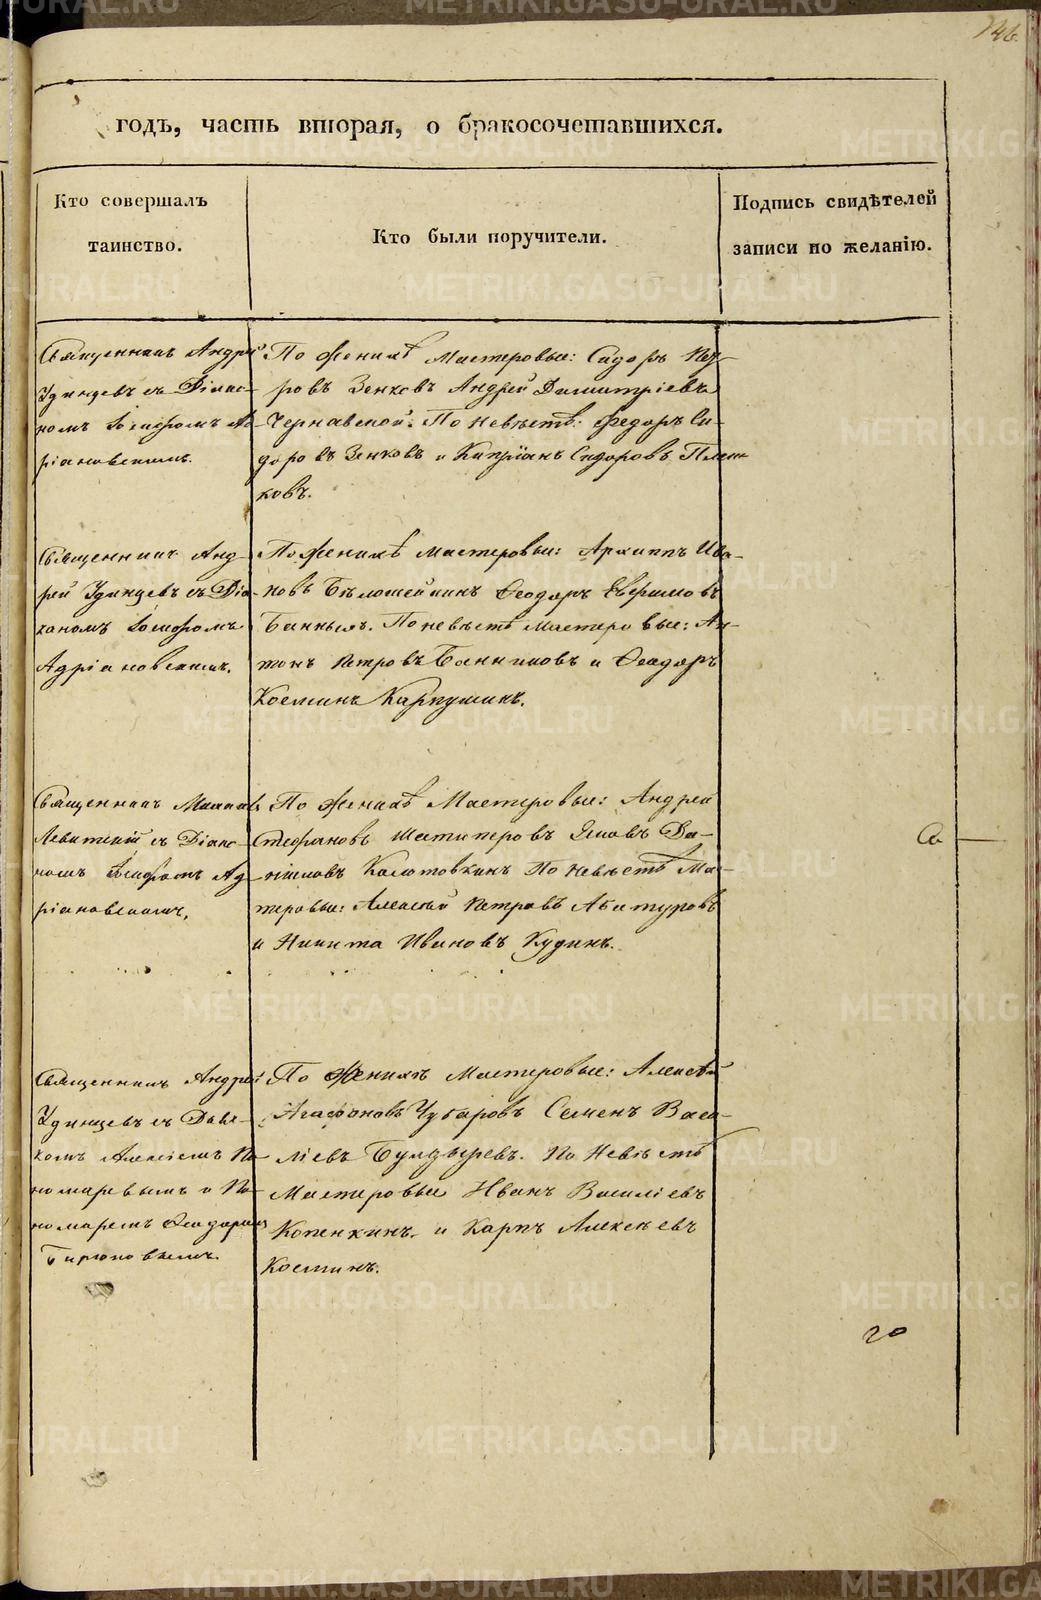 146.
годъ, часть вторая, о бракосочетавшихся.
Кто совершалъ
таинство.
Кто были поручители.
Подпись свидѣтелей
записи по желанію.
Священникъ Андрей
Удинцевъ съ Діако-
номъ Іосифомъ Ад-
ріановскимъ.
По женихѣ Мастеровые: Сидоръ Пет-
ровъ Зенковъ Андрей Димитріевъ
Чернавской. По невѣстѣ: Федоръ Си-
доровъ Зенковъ и Капріанъ Сидоровъ
ковъ.
Священникъ Анд-
рей Удинцевъ съ Діа-
кономъ Іосифомъ
Адріановскимъ.
По женихѣ мастеровые: Архиппъ Ива-
новъ Бѣлошейкинъ Феодоръ Евфимовъ
Банныхъ. По невѣстѣ мастеровые: Ан-
тонъ Петровъ Банниковъ и Феодоръ
Косминъ Карпушинъ.
Священникъ Михаилъ
Левитскій съ Діако-
номъ Іосифомъ Ад-
ріановскимъ.
По женихѣ Мастеровые: Андрей
Стефановъ Шатиперовъ Яковъ Да-
ниловъ Колотовкинъ По невѣстѣ Мас-
теровые: Алексѣй Петровъ Абатуровъ
и Никита Ивановъ Кудинъ.
Священникъ Андрей
Удинцевъ съ Дьяч-
комъ Алексіемъ По-
номаревымъ и По-
номаремъ Феодоромъ
Бирюковымъ.
По женихѣ Мастеровые: Алексѣй
Агафоновъ Чубаровъ Семенъ Васи-
ліевъ Булдыревъ. По Невѣстѣ
Мастеровые Иванъ Василіевъ
Копенкинъ. и Карпъ Алексѣевъ
Косминъ.
METRIKI.GASO-URAL.RU